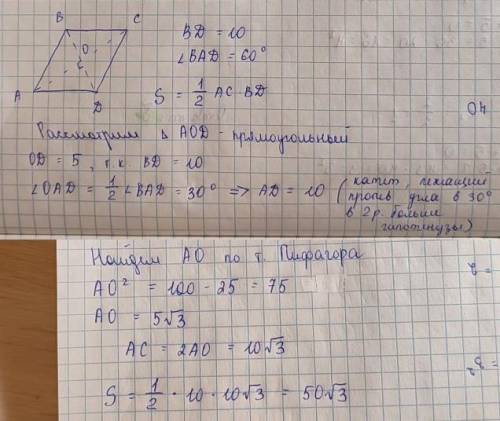 B C
BD = 10
∠BAD = 60°
O
A D
S = 1/2 AC · BD
40
Рассмотрим Δ AOD - прямоугольный
OD = 5, т.к. BD = 10
∠OAD = 1/2 ∠BAD = 30° => AD = 10 (катет, лежащий
против угла в 30°
в 2 р. больше
гипотенузы)
Найдем AO по т. Пифагора
AO² = 100 - 25 = 75
AO = 5√3
AC = 2AO = 10√3
S = 1/2 · 10 · 10√3 = 50√3